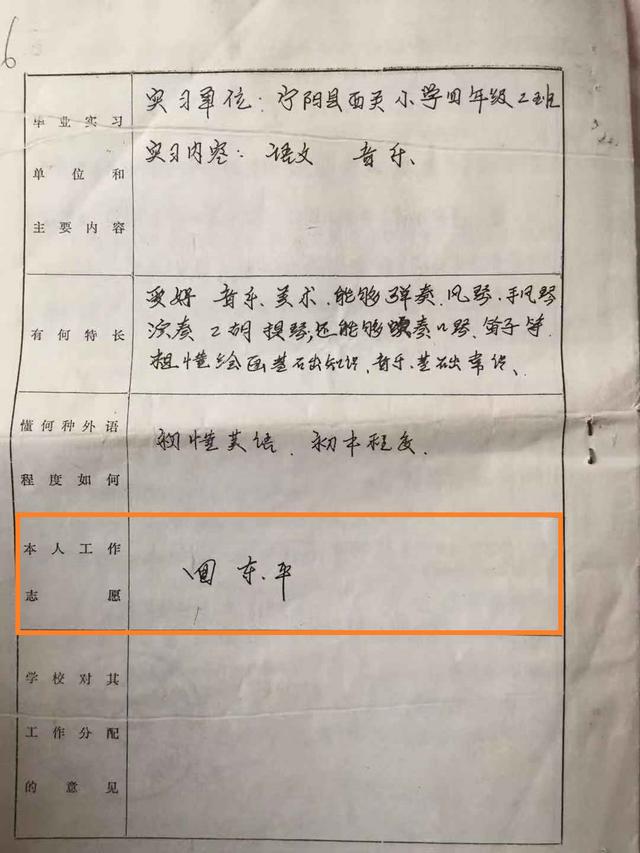 6
毕业实习
单位和
主要内容
实习单位：宁阳县西关小学四年级2班
实习内容：语文 音乐、
有何特长
爱好 音乐、美术、能够弹奏、风琴、手风琴
演奏 二胡 提琴；还能够演奏口琴、笛子等
粗懂绘画基础知识、音乐、基础常识、
懂何种外语
程度如何
初懂英语、初中程度、
本人工作
志愿
回东平
学校对其
工作分配
的意见